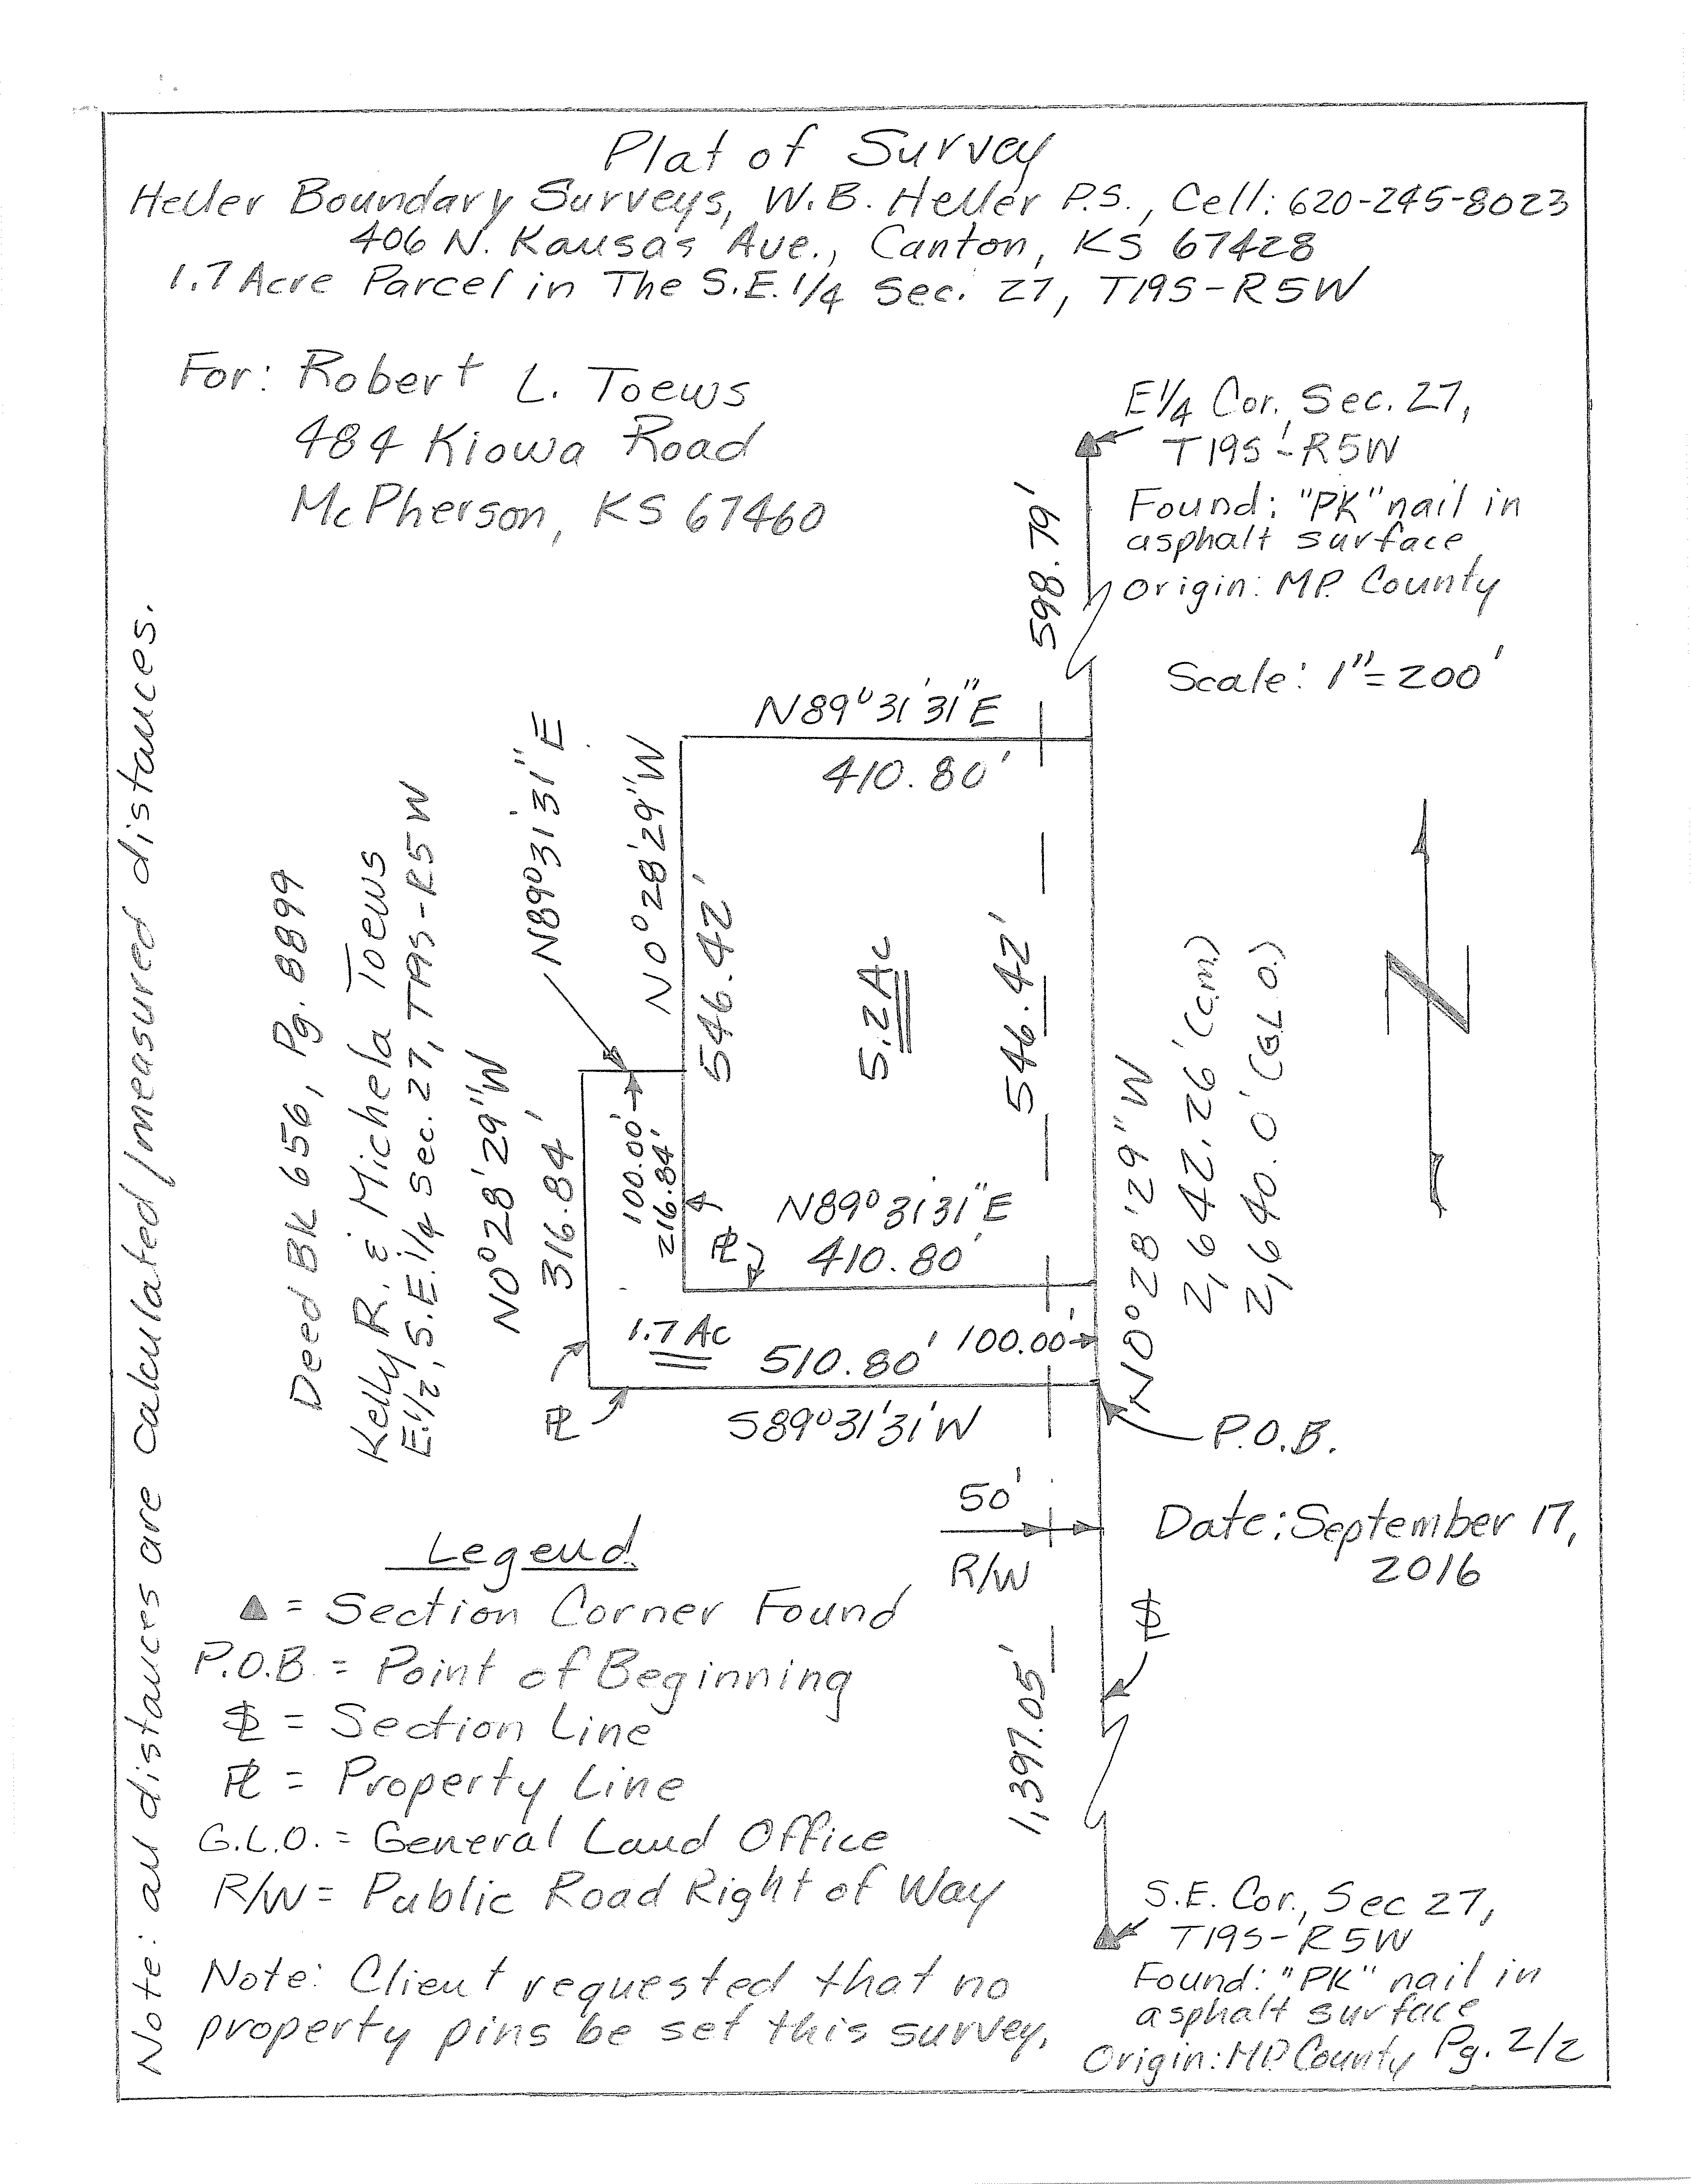 Plat of Survey
Heller Boundary Surveys, W.B. Heller P.S., Cell: 620-245-8023
406 N. Kansas Ave., Canton, KS 67428
1.7 Acre Parcel in The S.E. 1/4 Sec. 27, T19S-R5W
For: Robert L. Toews
484 Kiowa Road
McPherson, KS 67460
E1/4 Cor. Sec. 27,
T19S-R5W
Found: "PK" nail in
asphalt surface
Origin: MP. County
598.79'
Scale: 1"=200'
N89°31'31"E
410.80'
N89°31'31"E
N0°28'29"W
546.42'
5.2 Ac
546.42'
Deed Bk 656, Pg. 8899
Kelly R. & Michela Toews
E.1/2, S.E.1/4 Sec. 27, T19S-R5W
N0°28'29"W
316.84'
100.00'
216.84'
N89°31'31"E
410.80'
PL
N0°28'29"W
2,642.26' (c.m.)
2,640.0' (G.L.O.)
N
1.7 Ac
510.80'
100.00'
PL
S89°31'31'W
P.O.B.
50'
R/W
Date: September 17,
2016
SL
1,397.05'
Legend
▲ = Section Corner Found
P.O.B. = Point of Beginning
SL = Section Line
PL = Property Line
G.L.O. = General Land Office
R/W = Public Road Right of Way
Note: Client requested that no
property pins be set this survey.
S.E. Cor., Sec 27,
T19S-R5W
Found: "PK" nail in
asphalt surface
Origin: MP. County Pg. 2/2
Note: all distances are calculated/measured distances.